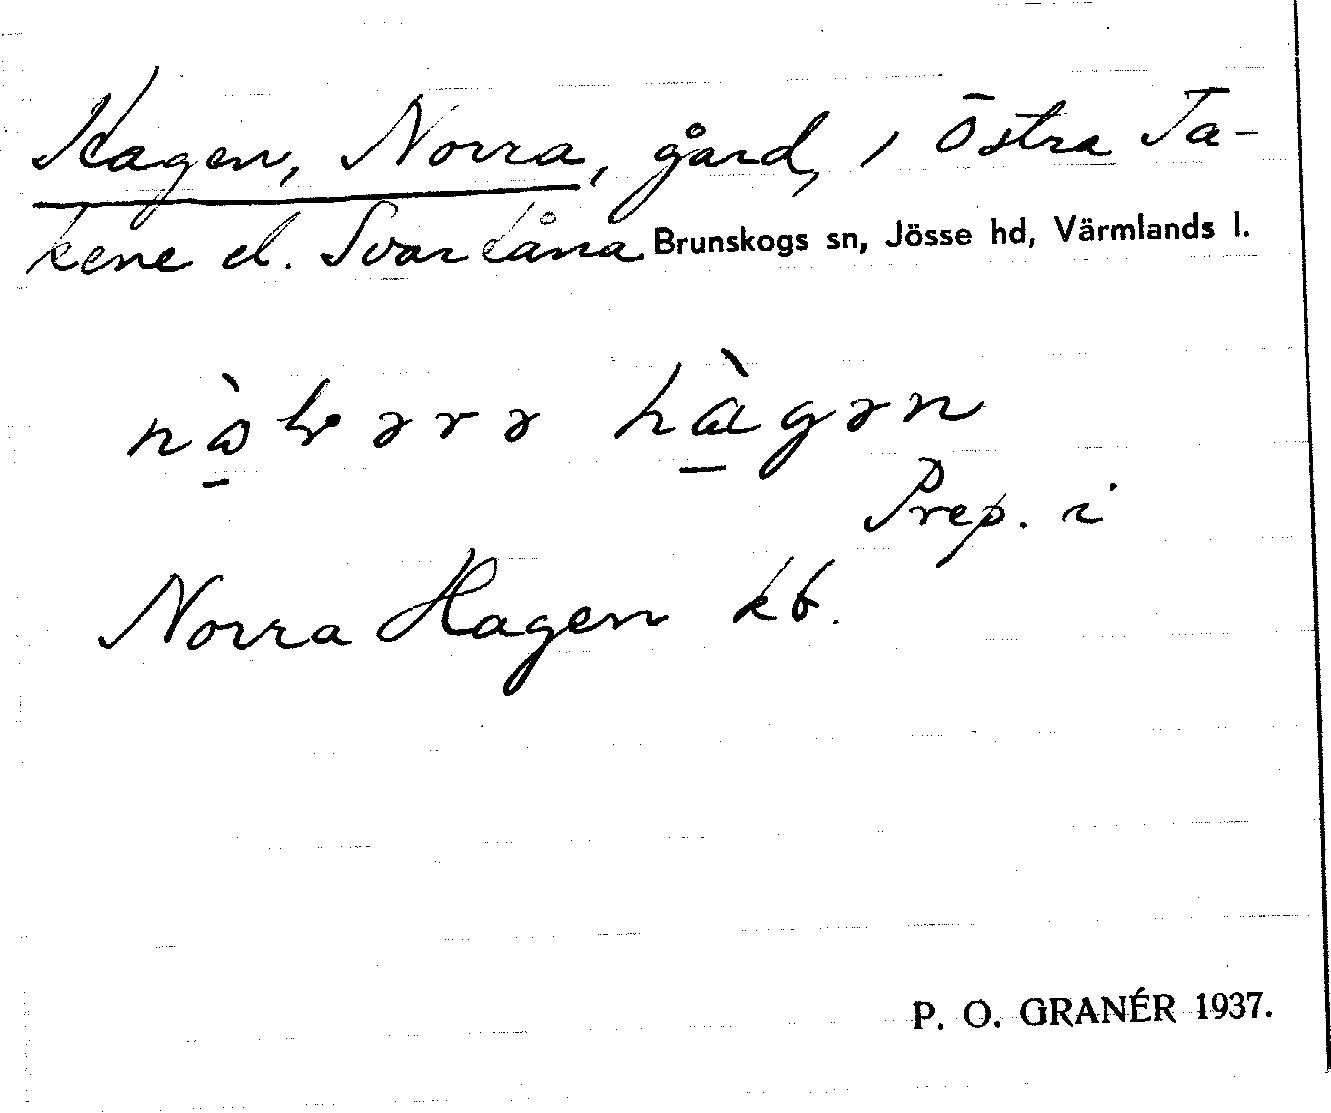 Hagen, Norra, gård, i Östra Ta-
kene el. Svartåna Brunskogs sn, Jösse hd, Värmlands l.
hàgən
Prep. i
Norra Hagen kb.
P. O. GRANÉR 1937.